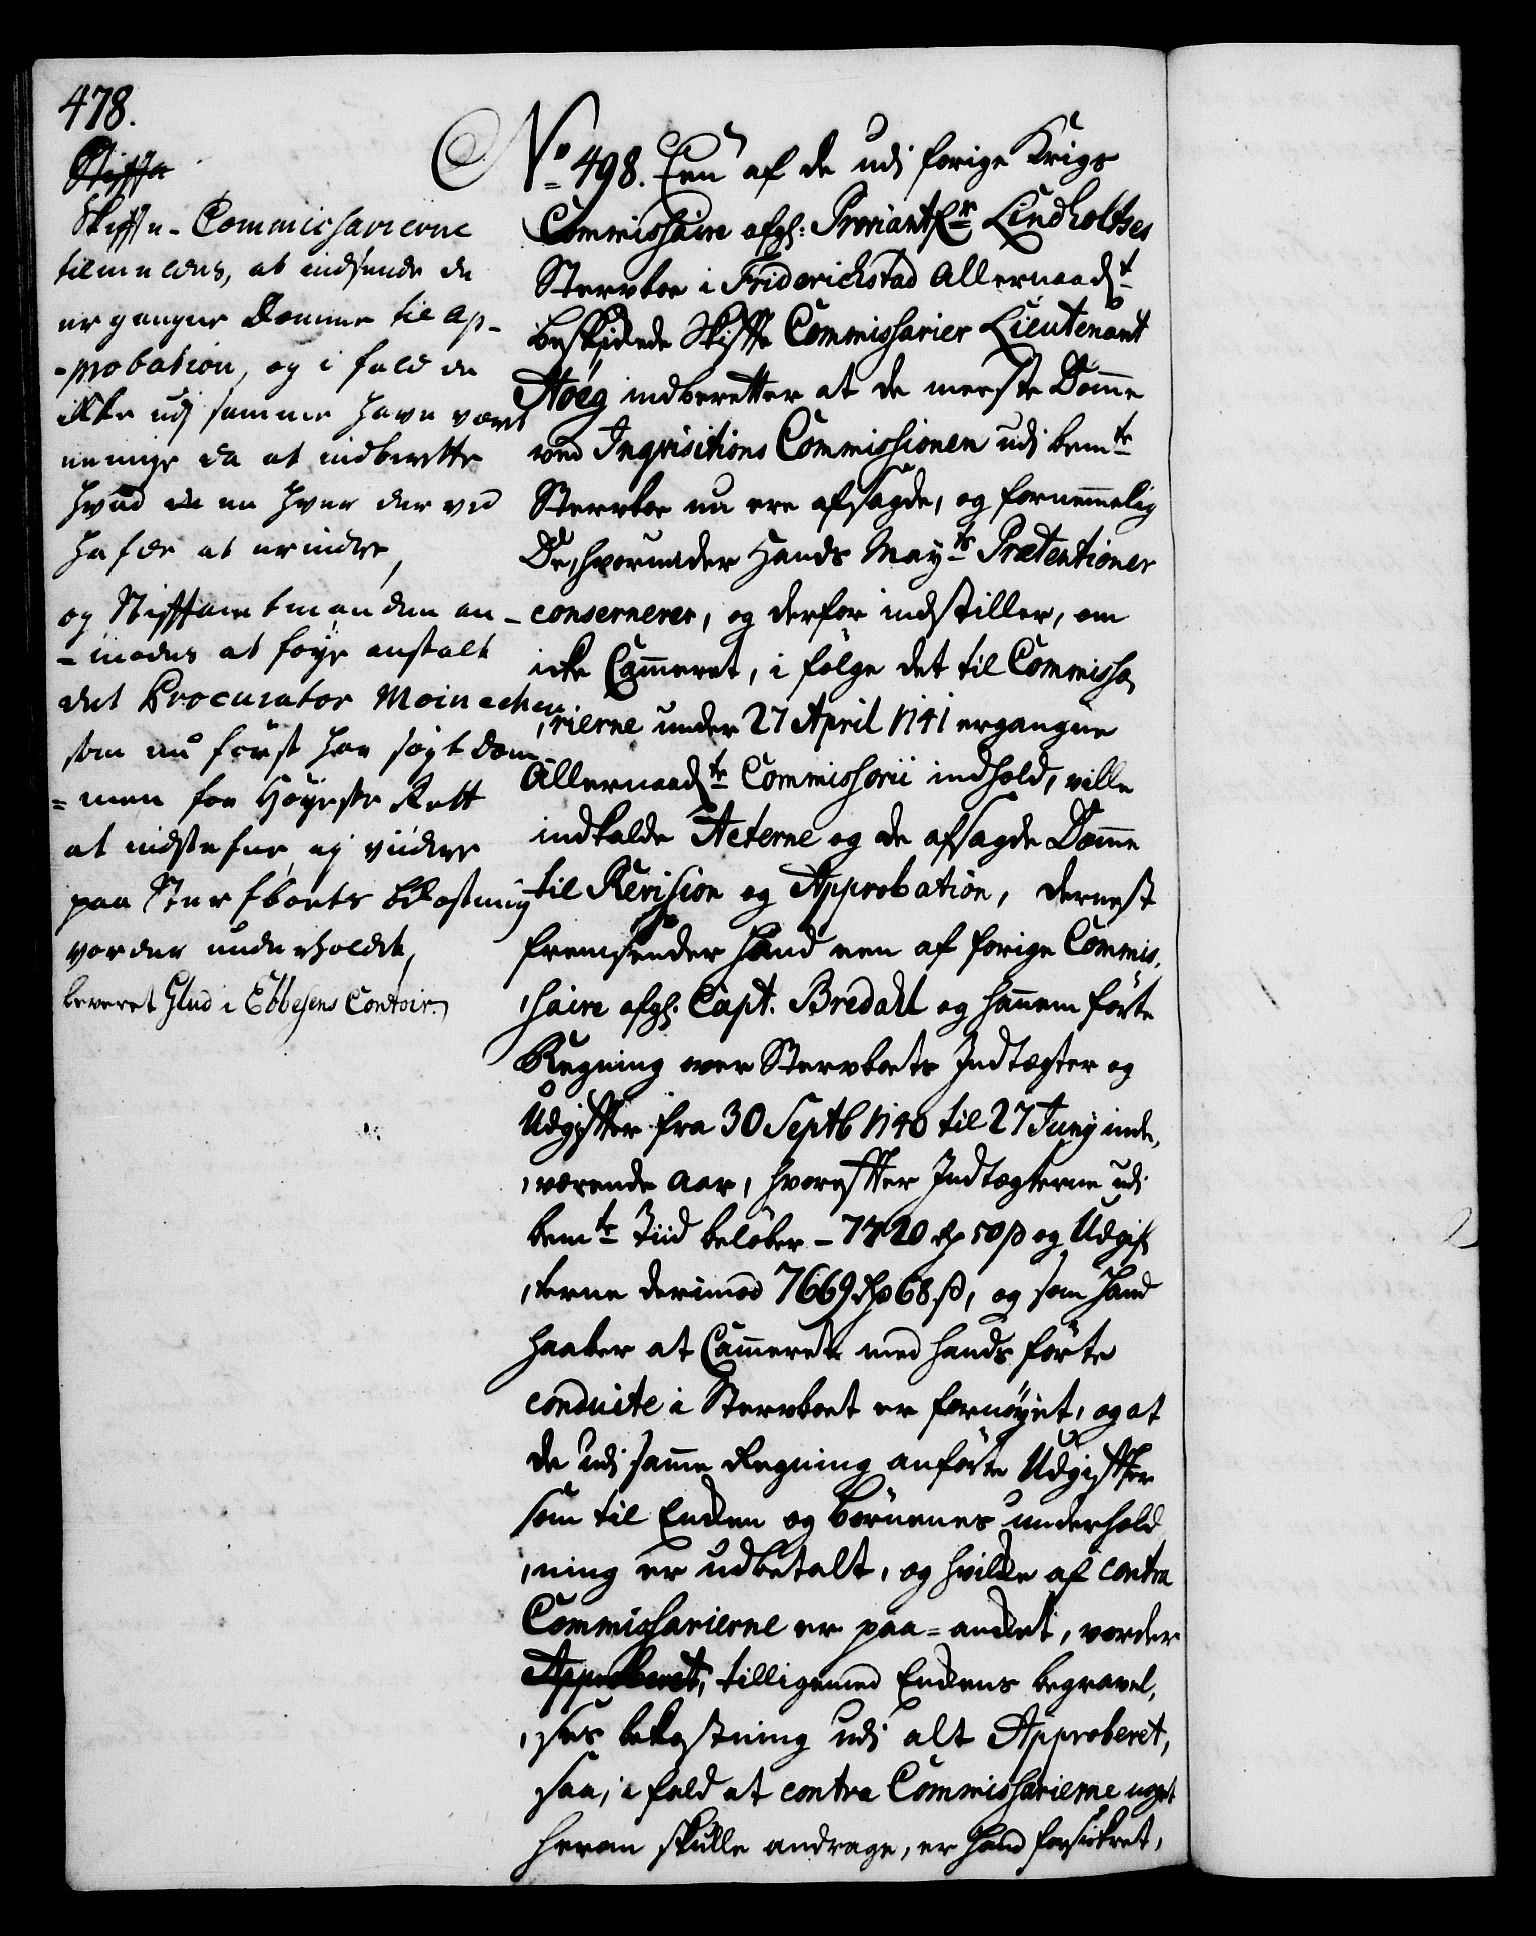 478.
Skiffte
Skifte-Commissarierne
tilmeldes, at indsende de
ergangne Domme til Ap-
-probation, og i fald de
ikke udj samme have været
eenige da at indberette
hvad de en hver der ved
hafde at erindre,
og Stiftamtmanden an-
-modes at föye anstalt
det Procurator Moinechen
som nu först har søgt Dom-
=men for Höyeste Rett
at indstefne ej viidere
paa Sterfboets Bekostning
vorder underholdet,
leveret Glud i Ebbesens Contoir.
No 498. Een af de udj forige Krigs
Commissaire afg: Proviantskr Lindholtzes
Stervboe i Friderichstad Allernaadst
beskikede Skifte Commissarier Lieutenant
Höeg indberetter at de meeste Domme
ved Inqvisitions Commissionen udj bemte
Stervboe nu ere afsagde, og fornemmelig
De, hvorunder Hands Mayts Prætentioner
conserneres, og derfor indstiller, om
icke Cammeret, i følge det til Commissa,
,rierne under 27 April 1741 ergangne
Allernaadste Commissorii indhold, ville
indkalde Acterne og de afsagde Domme
til Revision og Approbation, dernest
fremsender Hand een af forige Commis,
,saire afg: Capt. Bredahl og hannem förte
Regning over Stervboets Indtægter og
Udgifter fra 30 Septb 1740 til 27 Junij inde,
,værende Aar, hvorefter Indtægterne udj
bemte Tiid beløber - 7720 rd 50 ß og Udgif,
,terne derimod 7669 rd 68 ß, og som Hand
haaber at Cammeret med hands förte
conduite i Stervboet er fornöyet, og at
de udj samme Regning anförte Udgifter
som til Enken og Börnenes underhold,
,ning er udbetalt, og hvilke af contra
Commissarierne er paa=anket, vorder
Approberet, tilligemed Enkens begravel,
,ses bekostning udj alt Approberet,
saa, i fald at contra Commissarierne noget
herom skulle andrage, er Hand forsikret,